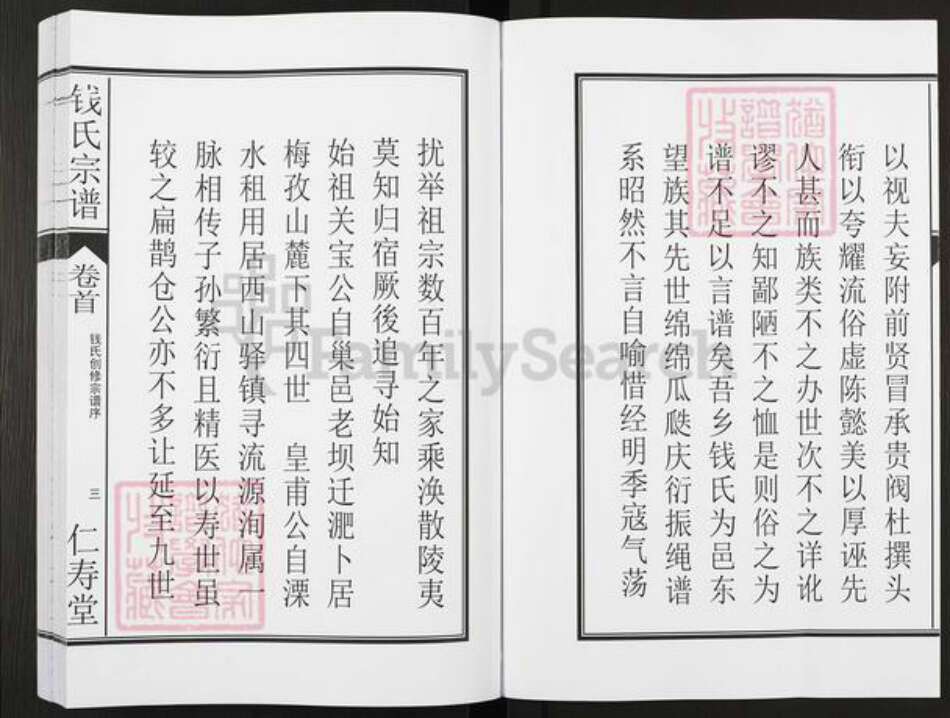 以视夫妄附前贤冒承贵阀杜撰头
衔以夸耀流俗虚陈懿美以厚诬先
人甚而族类不之办世次不之详讹
谬不之知鄙陋不之恤是则俗之为
谱不足以言谱矣吾乡钱氏为邑东
望族其先世绵绵瓜瓞庆衍振绳谱
系昭然不言自喻惜经明季寇气荡
扰举祖宗数百年之家乘涣散陵夷
莫知归宿厥後追寻始知
始祖关宝公自巢邑老坝迁淝卜居
梅孜山麓下其四世 皇甫公自溧
水租用居西山驿镇寻流源洵属一
脉相传子孙繁衍且精医以寿世虽
较之扁鹊仓公亦不多让延至九世
钱氏宗谱
卷首
钱氏创修宗谱序
三
仁寿堂
FamilySearch